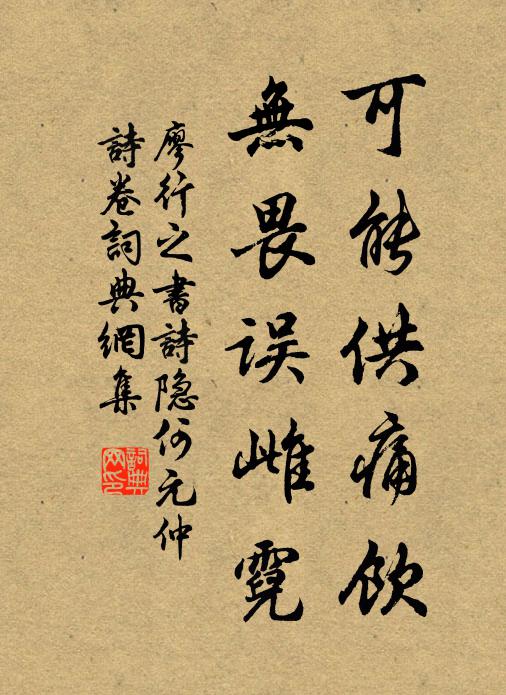 可能供痛飲
無畏误雌霓
廖行之書詩隐何元仲
詩卷詞典網集
詞典网印